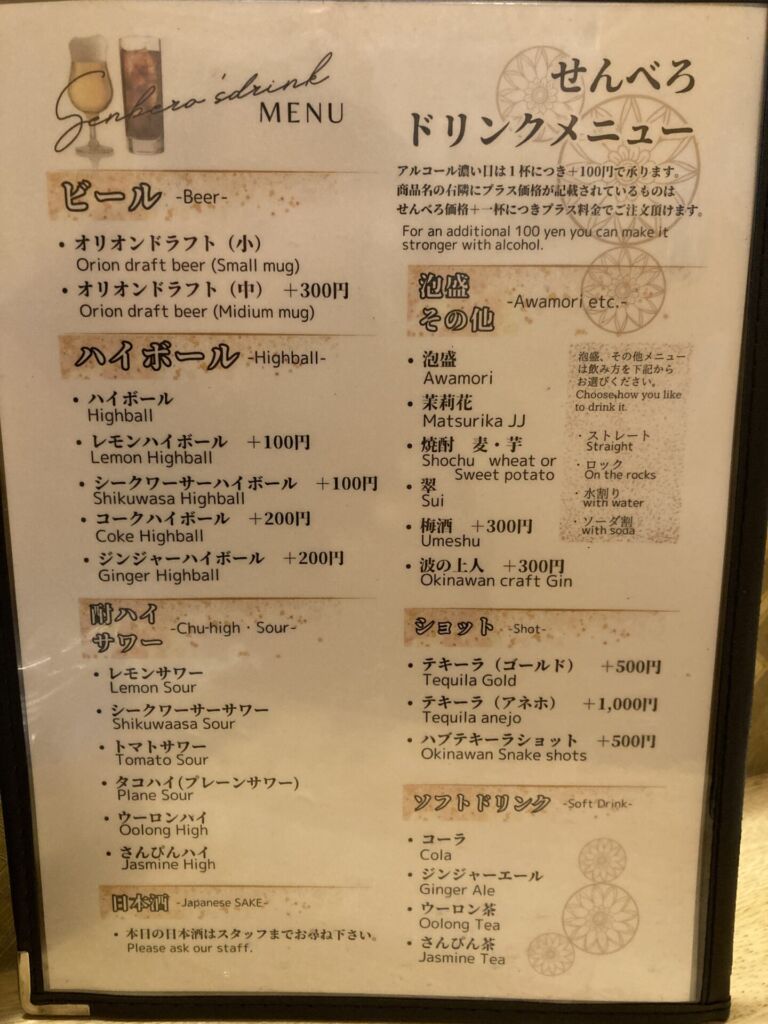 Senbero'sdrink
MENU
せんべろ
ドリンクメニュー
アルコール濃い目は1杯につき+100円で承ります。
商品名の右隣にプラス価格が記載されているものは
せんべろ価格+一杯につきプラス料金でご注文頂けます。
For an additional 100 yen you can make it
stronger with alcohol.
ビール -Beer-
・オリオンドラフト（小）
Orion draft beer (Small mug)
・オリオンドラフト（中） +300円
Orion draft beer (Midium mug)
ハイボール -Highball-
・ハイボール
Highball
・レモンハイボール +100円
Lemon Highball
・シークワーサーハイボール +100円
Shikuwasa Highball
・コークハイボール +200円
Coke Highball
・ジンジャーハイボール +200円
Ginger Highball
酎ハイ
サワー -Chu-high・Sour-
・レモンサワー
Lemon Sour
・シークワーサーサワー
Shikuwaasa Sour
・トマトサワー
Tomato Sour
・タコハイ(プレーンサワー)
Plane Sour
・ウーロンハイ
Oolong High
・さんぴんハイ
Jasmine High
日本酒 -Japanese SAKE-
・本日の日本酒はスタッフまでお尋ね下さい。
Please ask our staff.
泡盛
その他 -Awamori etc.-
・泡盛
Awamori
・茉莉花
Matsurika JJ
・焼酎 麦・芋
Shochu wheat or
Sweet potato
・翠
Sui
・梅酒 +300円
Umeshu
・波の上人 +300円
Okinawan craft Gin
泡盛、その他メニュー
は飲み方を下記から
お選びください。
Choose how you like
to drink it.
・ストレート
Straight
・ロック
On the rocks
・水割り
with water
・ソーダ割
with soda
ショット -Shot-
・テキーラ（ゴールド） +500円
Tequila Gold
・テキーラ（アネホ） +1,000円
Tequila anejo
・ハブテキーラショット +500円
Okinawan Snake shots
ソフトドリンク -Soft Drink-
・コーラ
Cola
・ジンジャーエール
Ginger Ale
・ウーロン茶
Oolong Tea
・さんぴん茶
Jasmine Tea